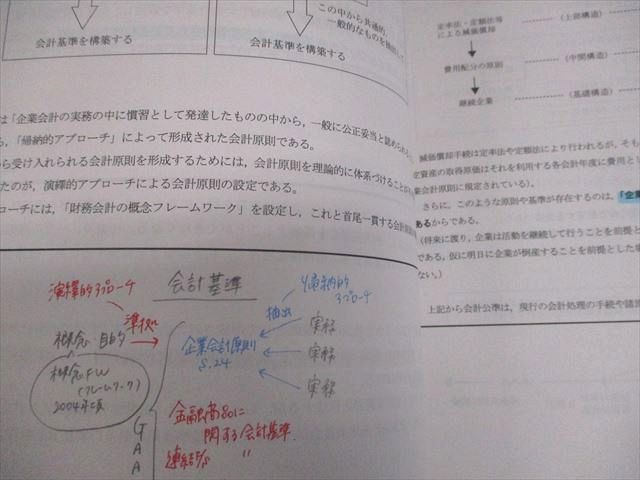 この中から共通的、
一般的なものを抽出して
会計基準を構築する
会計基準を構築する
は「企業会計の実務の中に慣習として発達したものの中から，一般に公正妥当と認められる
「帰納的アプローチ」によって形成された会計原則である。
ら受け入れられる会計原則を形成するためには，会計原則を理論的に体系づけることが
たのが，演繹的アプローチによる会計原則の設定である。
ローチには，「財務会計の概念フレームワーク」を設定し，これと首尾一貫する会計
会計基準
演繹的アプローチ
帰納的
アプローチ
準拠
抽出
概念 目的
企業会計原則
S.24
実務
実務
実務
概念FW
(フレームワーク)
2004年頃
金融商品に
関する会計基準
連結F/S 〃
G
A
A
定率法・定額法等
による減価償却
(上部構造)
費用配分の原則
(中間構造)
継続企業
(基礎構造)
減価償却手続は定率法や定額法により行われるが，そも
定資産の取得原価はそれを利用する各会計年度に費用と
業会計原則に規定されている)。
さらに，このような原則や基準が存在するのは，「企業
あるからである。
(将来に渡り，企業は活動を継続して行うことを前提と
である，仮に明日に企業が倒産することを前提とした場
ない。)
上記から会計公準は，現行の会計処理の手続や諸